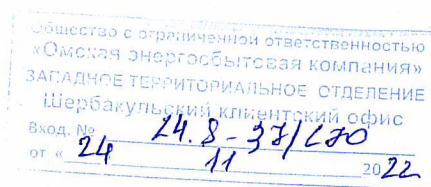 Общество с ограниченной ответственностью
«Омская энергосбытовая компания»
ЗАПАДНОЕ ТЕРРИТОРИАЛЬНОЕ ОТДЕЛЕНИЕ
Шербакульский клиентский офис
Вход. № 24.8-37/270
от « 24 11 2022